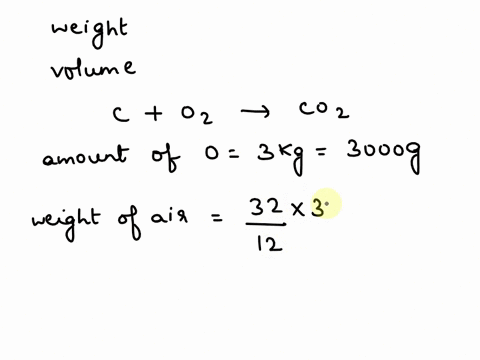 weight
volume
C + O2 → CO2
amount of O = 3Kg = 3000g
weight of air = 32/12 × 3